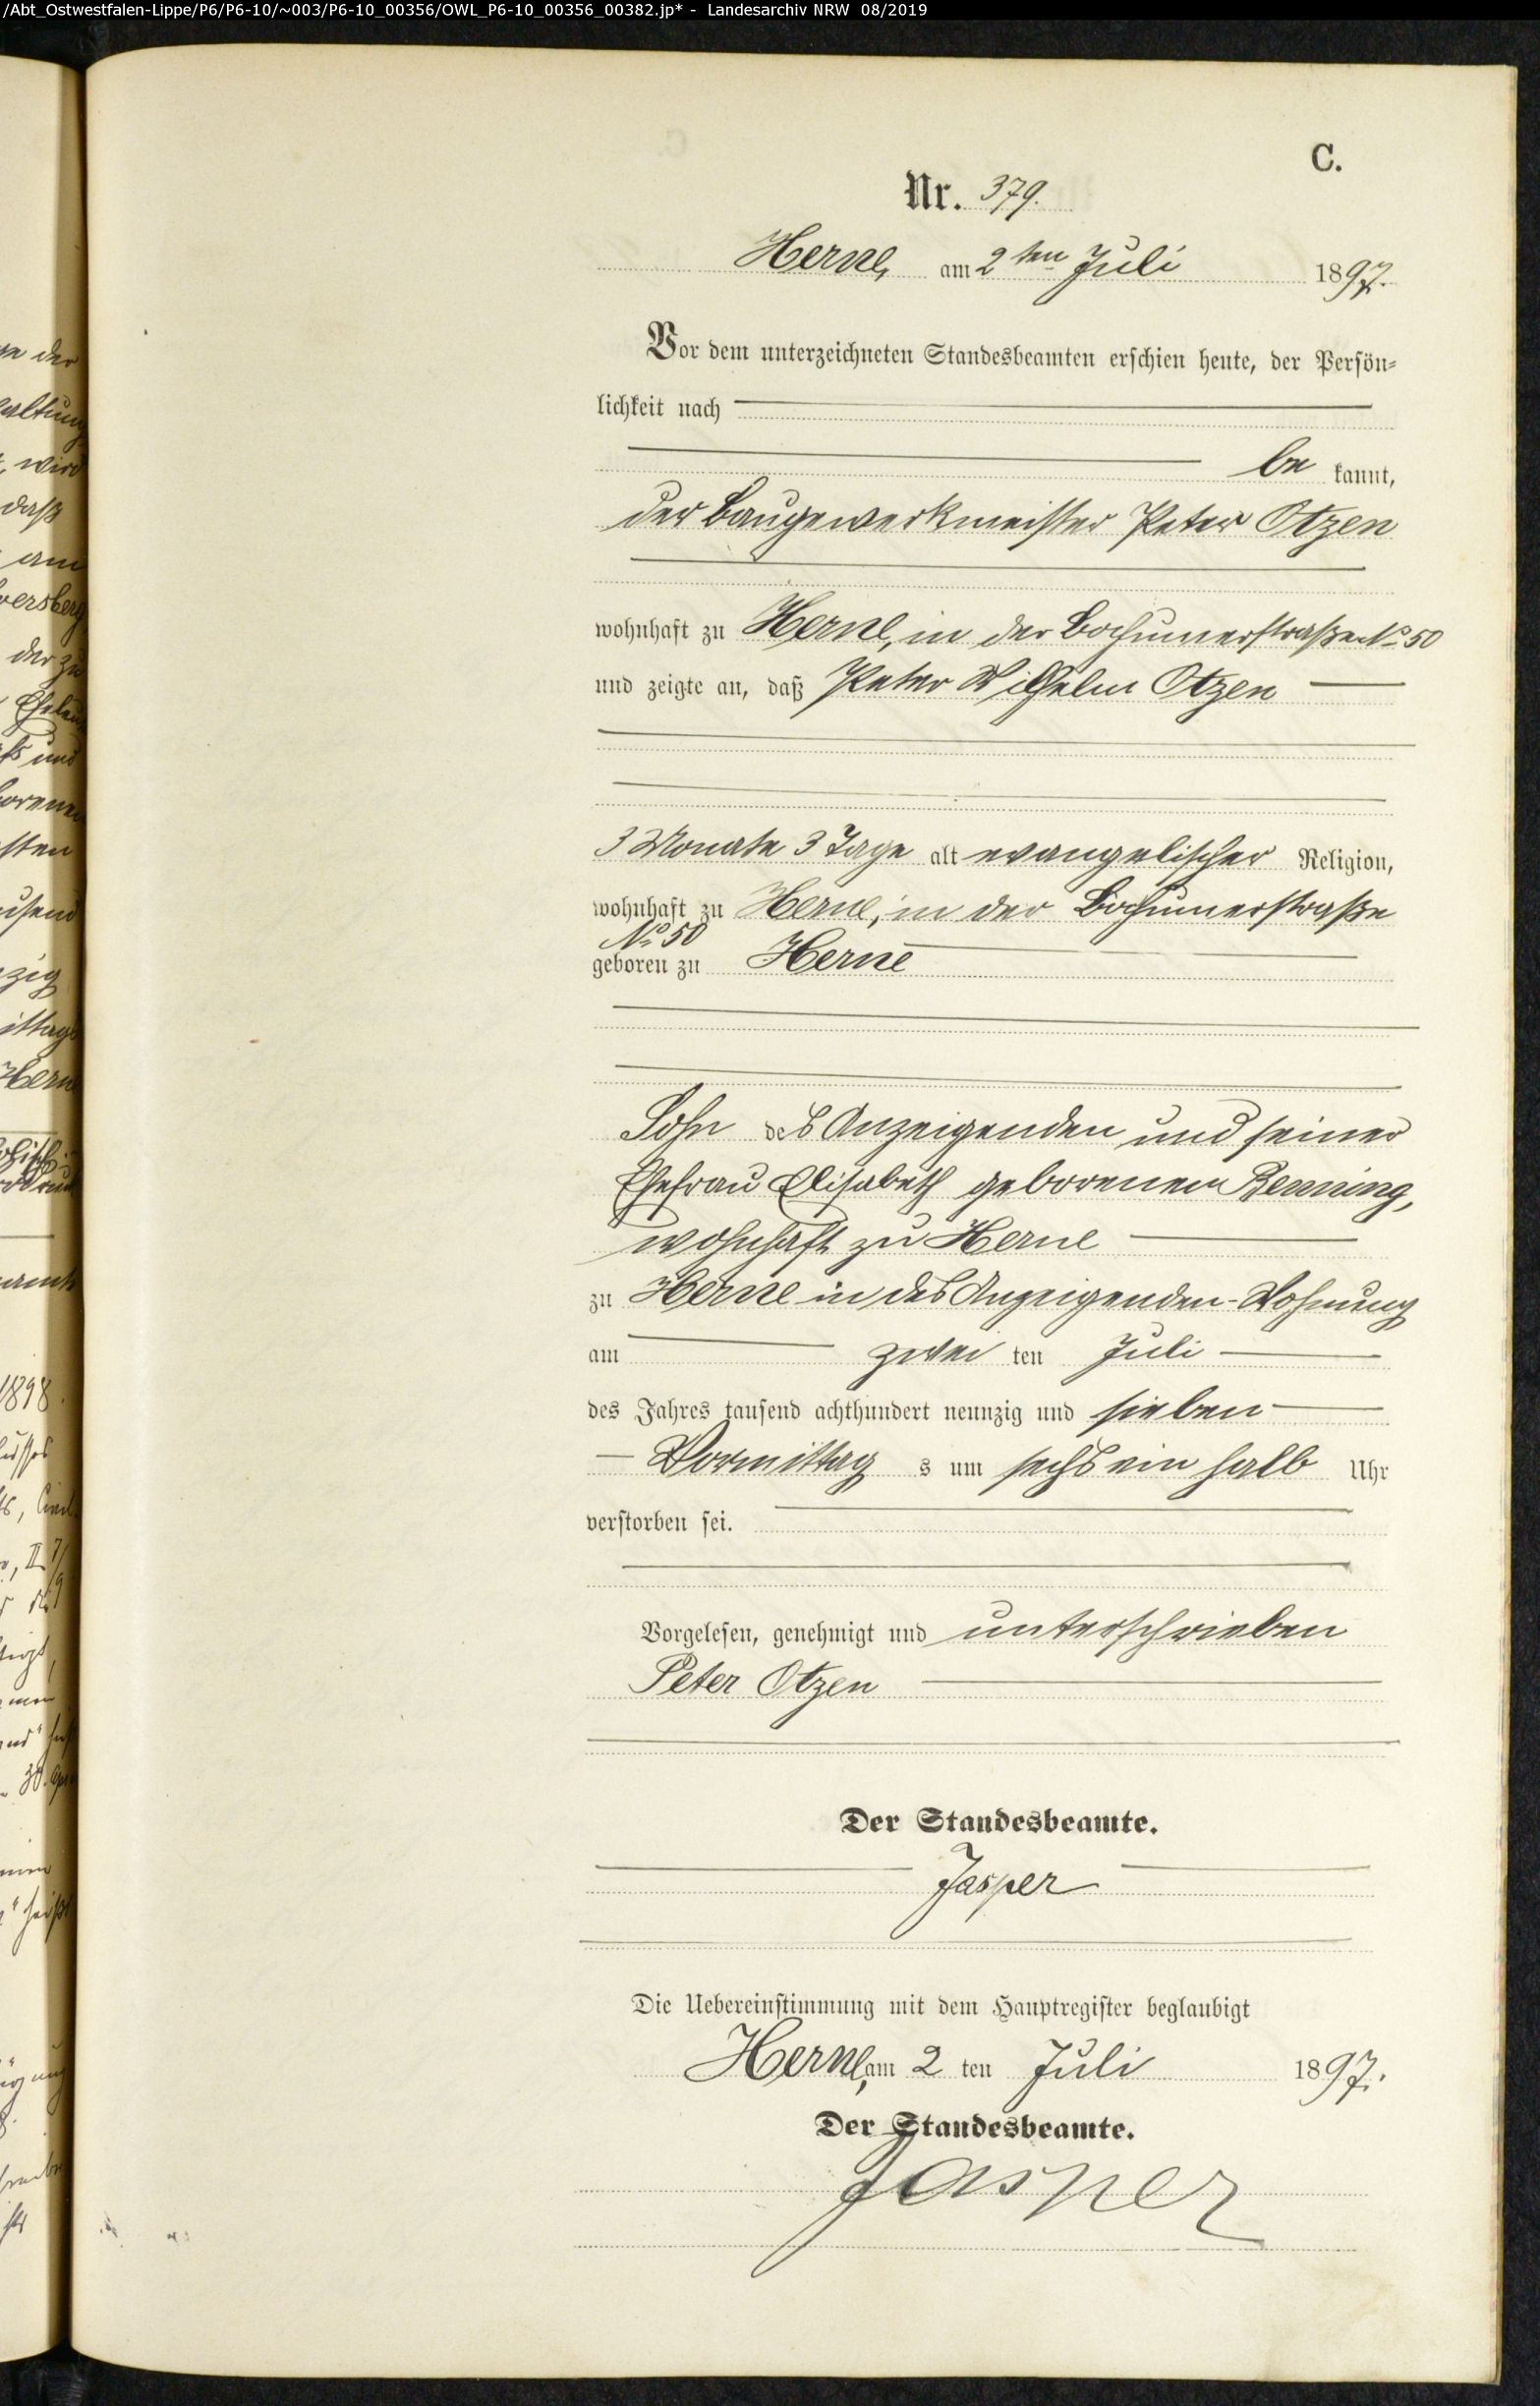 /Abt_Ostwestfalen-Lippe/P6/P6-10/~003/P6-10_00356/OWL_P6-10_00356_00382.jp* - Landesarchiv NRW 08/2019
C.
Nr. 379.
Herne, am 2ten Juli 1897.
Vor dem unterzeichneten Standesbeamten erschien heute, der Persön-
lichkeit nach
be kannt,
der Baugewerkmeister Peter Otzen
wohnhaft zu Herne, in der Bochumerstraße No 50
und zeigte an, daß Peter Wilhelm Otzen
3 Monate 3 Tage alt evangelischer Religion,
wohnhaft zu Herne, in der Bochumerstraße
No 50
geboren zu Herne
Sohn des Anzeigenden und seiner
Ehefrau Elisabeth geborenen Benning,
wohnhaft zu Herne
zu Herne in des Anzeigenden-Wohnung
am zwei ten Juli
des Jahres tausend achthundert neunzig und sieben
Vormittag s um sechs ein halb Uhr
verstorben sei.
Vorgelesen, genehmigt und unterschrieben
Peter Otzen
Der Standesbeamte.
Jasper
Die Uebereinstimmung mit dem Hauptregister beglaubigt
Herne, am 2 ten Juli 1897.
Der Standesbeamte.
Jasper